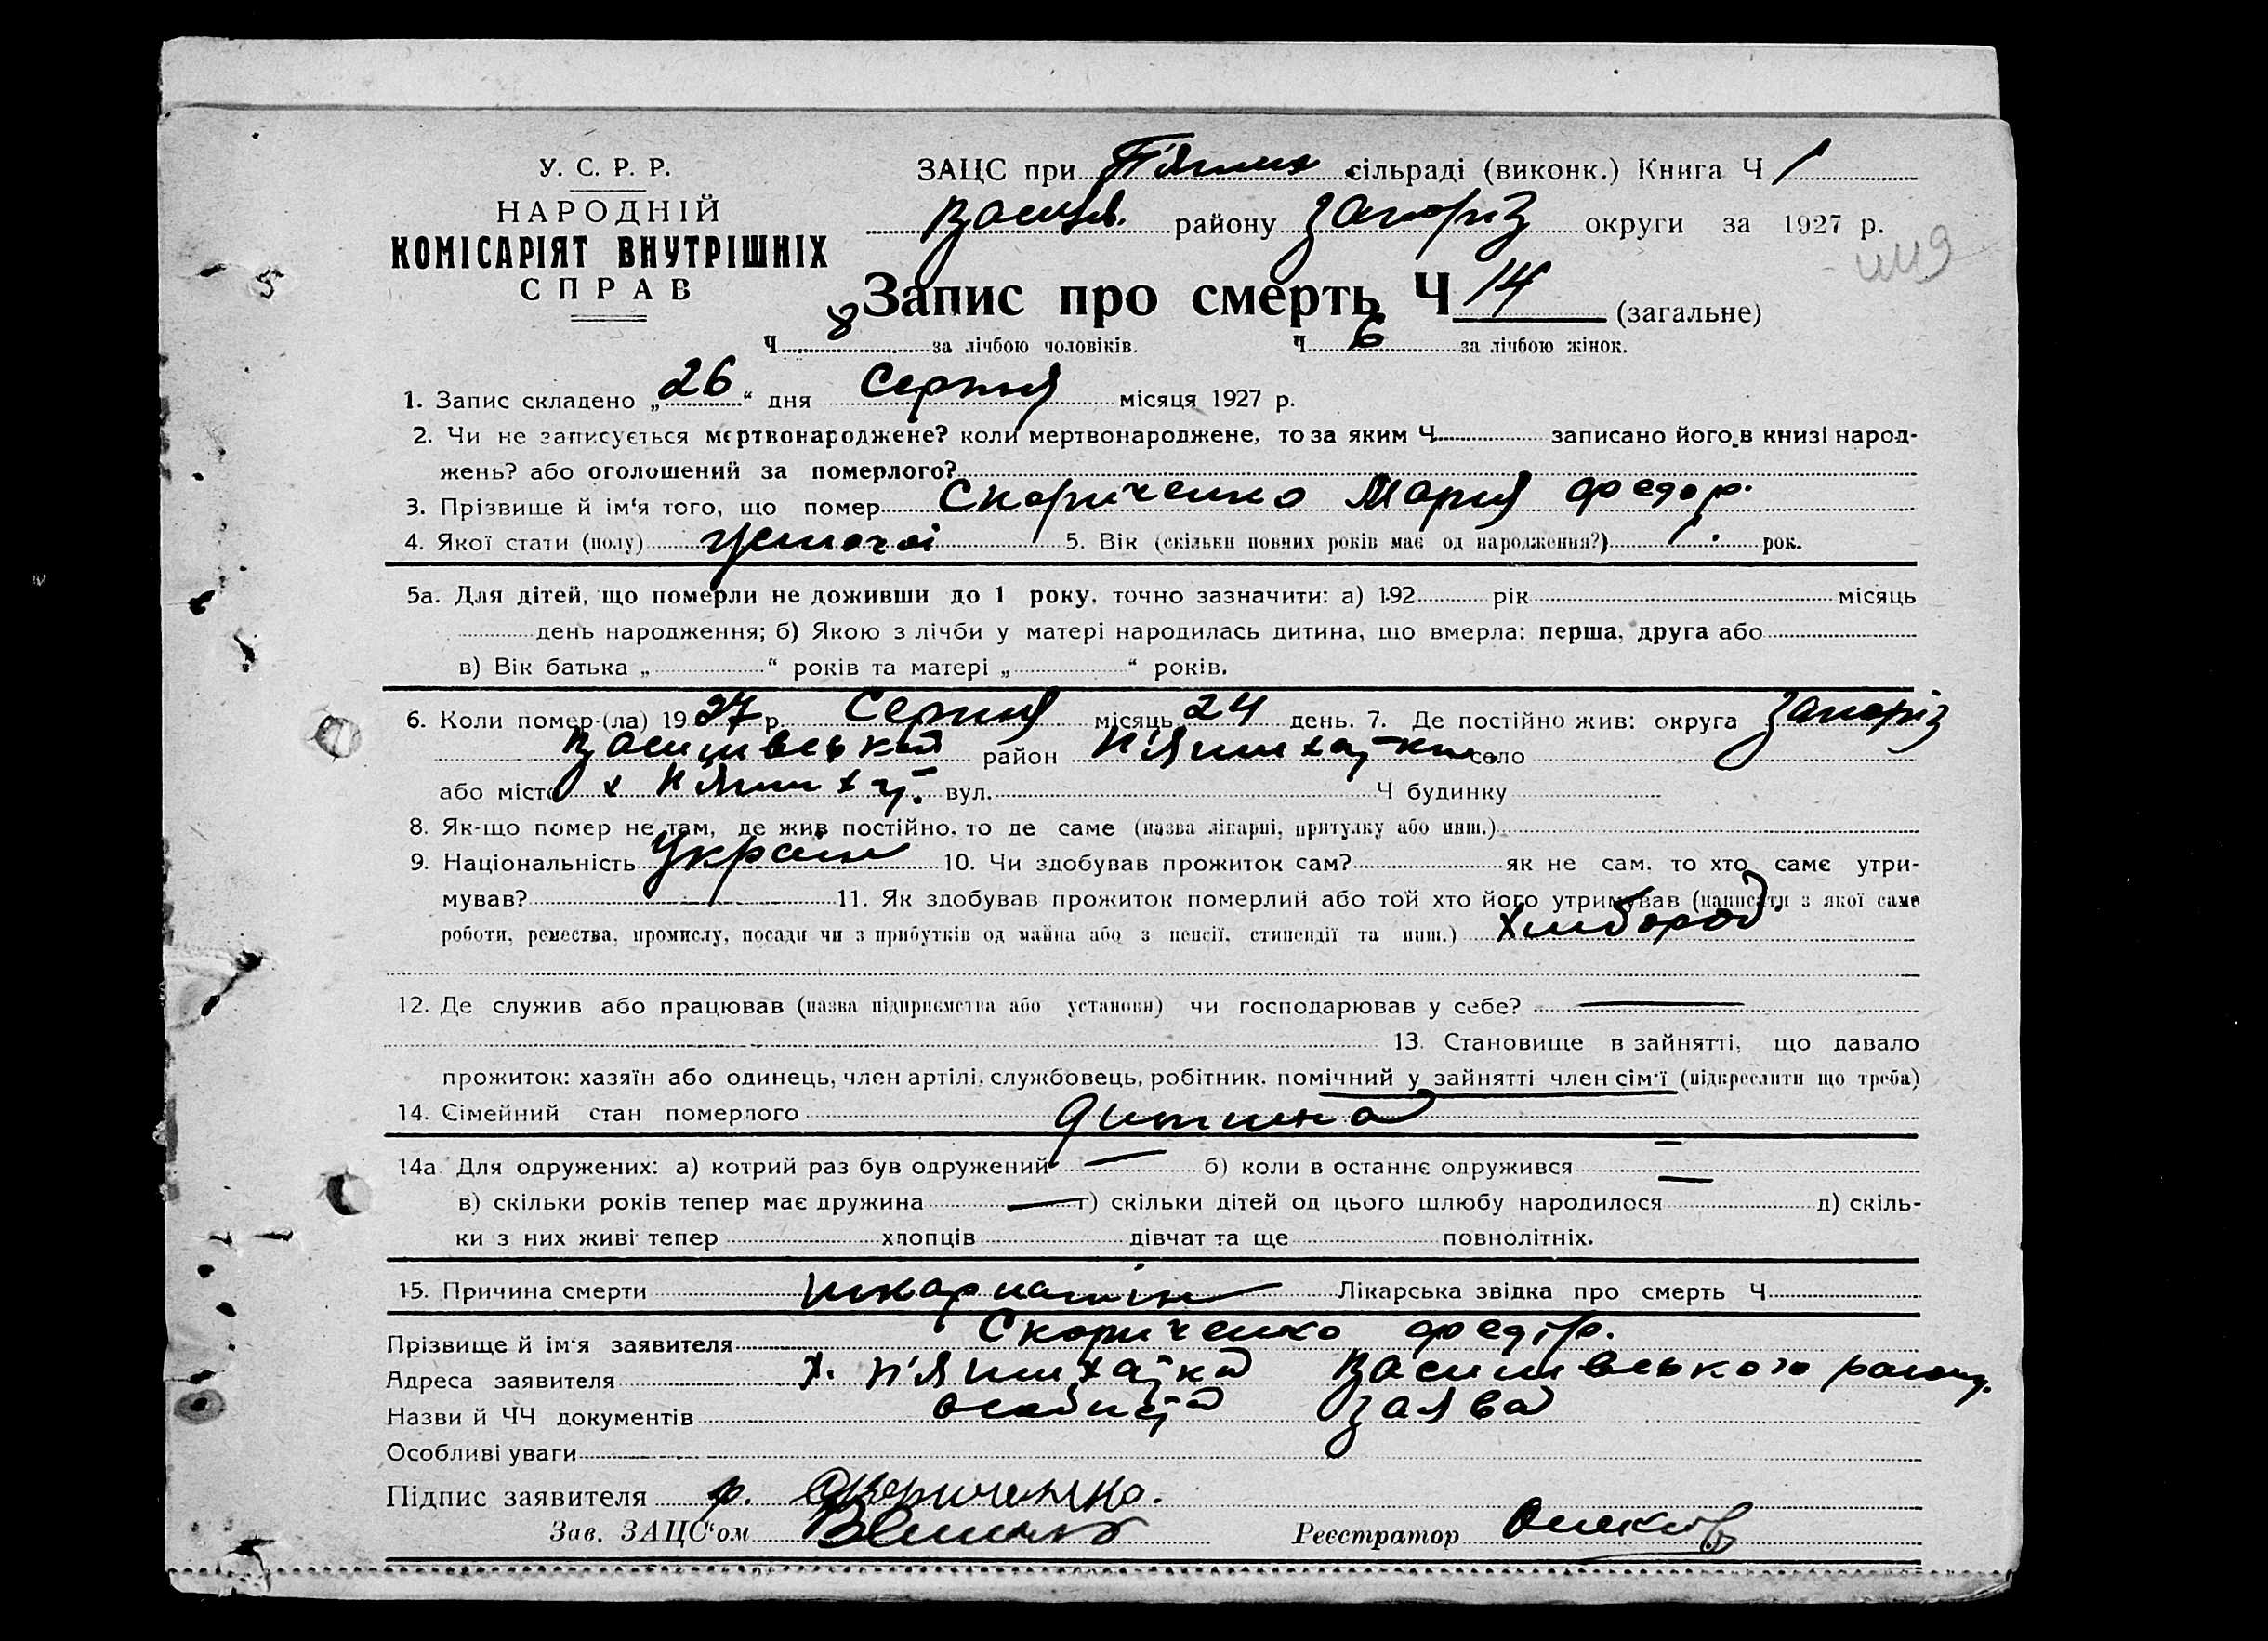 У. С. Р. Р.
НАРОДНІЙ
КОМІСАРІЯТ ВНУТРІШНІХ
СПРАВ
ЗАЦС при П'ятих сільраді (виконк.) Книга Ч 1
Васил. району Запоріз округи за 1927 р.
Запис про смерть Ч 14 (загальне)
Ч 8 за лічбою чоловіків. Ч 6 за лічбою жінок.
1. Запис складено „26“ дня Серпня місяця 1927 р.
2. Чи не записується мертвонароджене? коли мертвонароджене, то за яким Ч записано його в книзі народ-
жень? або оголошений за померлого?
3. Прізвище й ім‘я того, що помер Скориченко Мария Федор.
4. Якої стати (полу) жіночої 5. Вік (скільки повних років має од народження?) 1. рок.
5а. Для дітей, що померли не доживши до 1 року, точно зазначити: а) 192 рік місяць
день народження; б) Якою з лічби у матері народилась дитина, що вмерла: перша, друга або
в) Вік батька „ “ років та матері „ “ років.
6. Коли помер-(ла) 1927 р. Серпня місяць 24 день. 7. Де постійно жив: округа Запоріз
Василівський район П'ятихатки село
або місто х П'ятихат. вул. Ч будинку
8. Як-що помер не там, де жив постійно, то де саме (назва лікарні, притулку або инш.)
9. Національність Україн 10. Чи здобував прожиток сам? як не сам, то хто саме утри-
мував? 11. Як здобував прожиток померлий або той хто його утримував (написати з якої саме
роботи, ремества, промислу, посади чи з прибутків од майна або з пенсії, стипендії та инш.) Хлибороб
12. Де служив або працював (назва підприємства або установи) чи господарював у себе? —
13. Становище в зайнятті, що давало
прожиток: хазяїн або одинець, член артілі, службовець, робітник, помічний у зайнятті член сім‘ї (підкреслити що треба)
14. Сімейний стан померлого дитина
14а Для одружених: а) котрий раз був одружений — б) коли в останнє одружився —
в) скільки років тепер має дружина — г) скільки дітей од цього шлюбу народилося — д) скіль-
ки з них живі тепер хлопців дівчат та ще повнолітніх.
15. Причина смерти шкарлатін Лікарська звідка про смерть Ч
Прізвище й ім‘я заявителя Скориченко Федір.
Адреса заявителя х. П'ятихатка Василівського району.
Назви й ЧЧ документів особиста заява
Особливі уваги
Підпис заявителя Ф. Скориченко.
Зав. ЗАЦС‘ом
Реєстратор